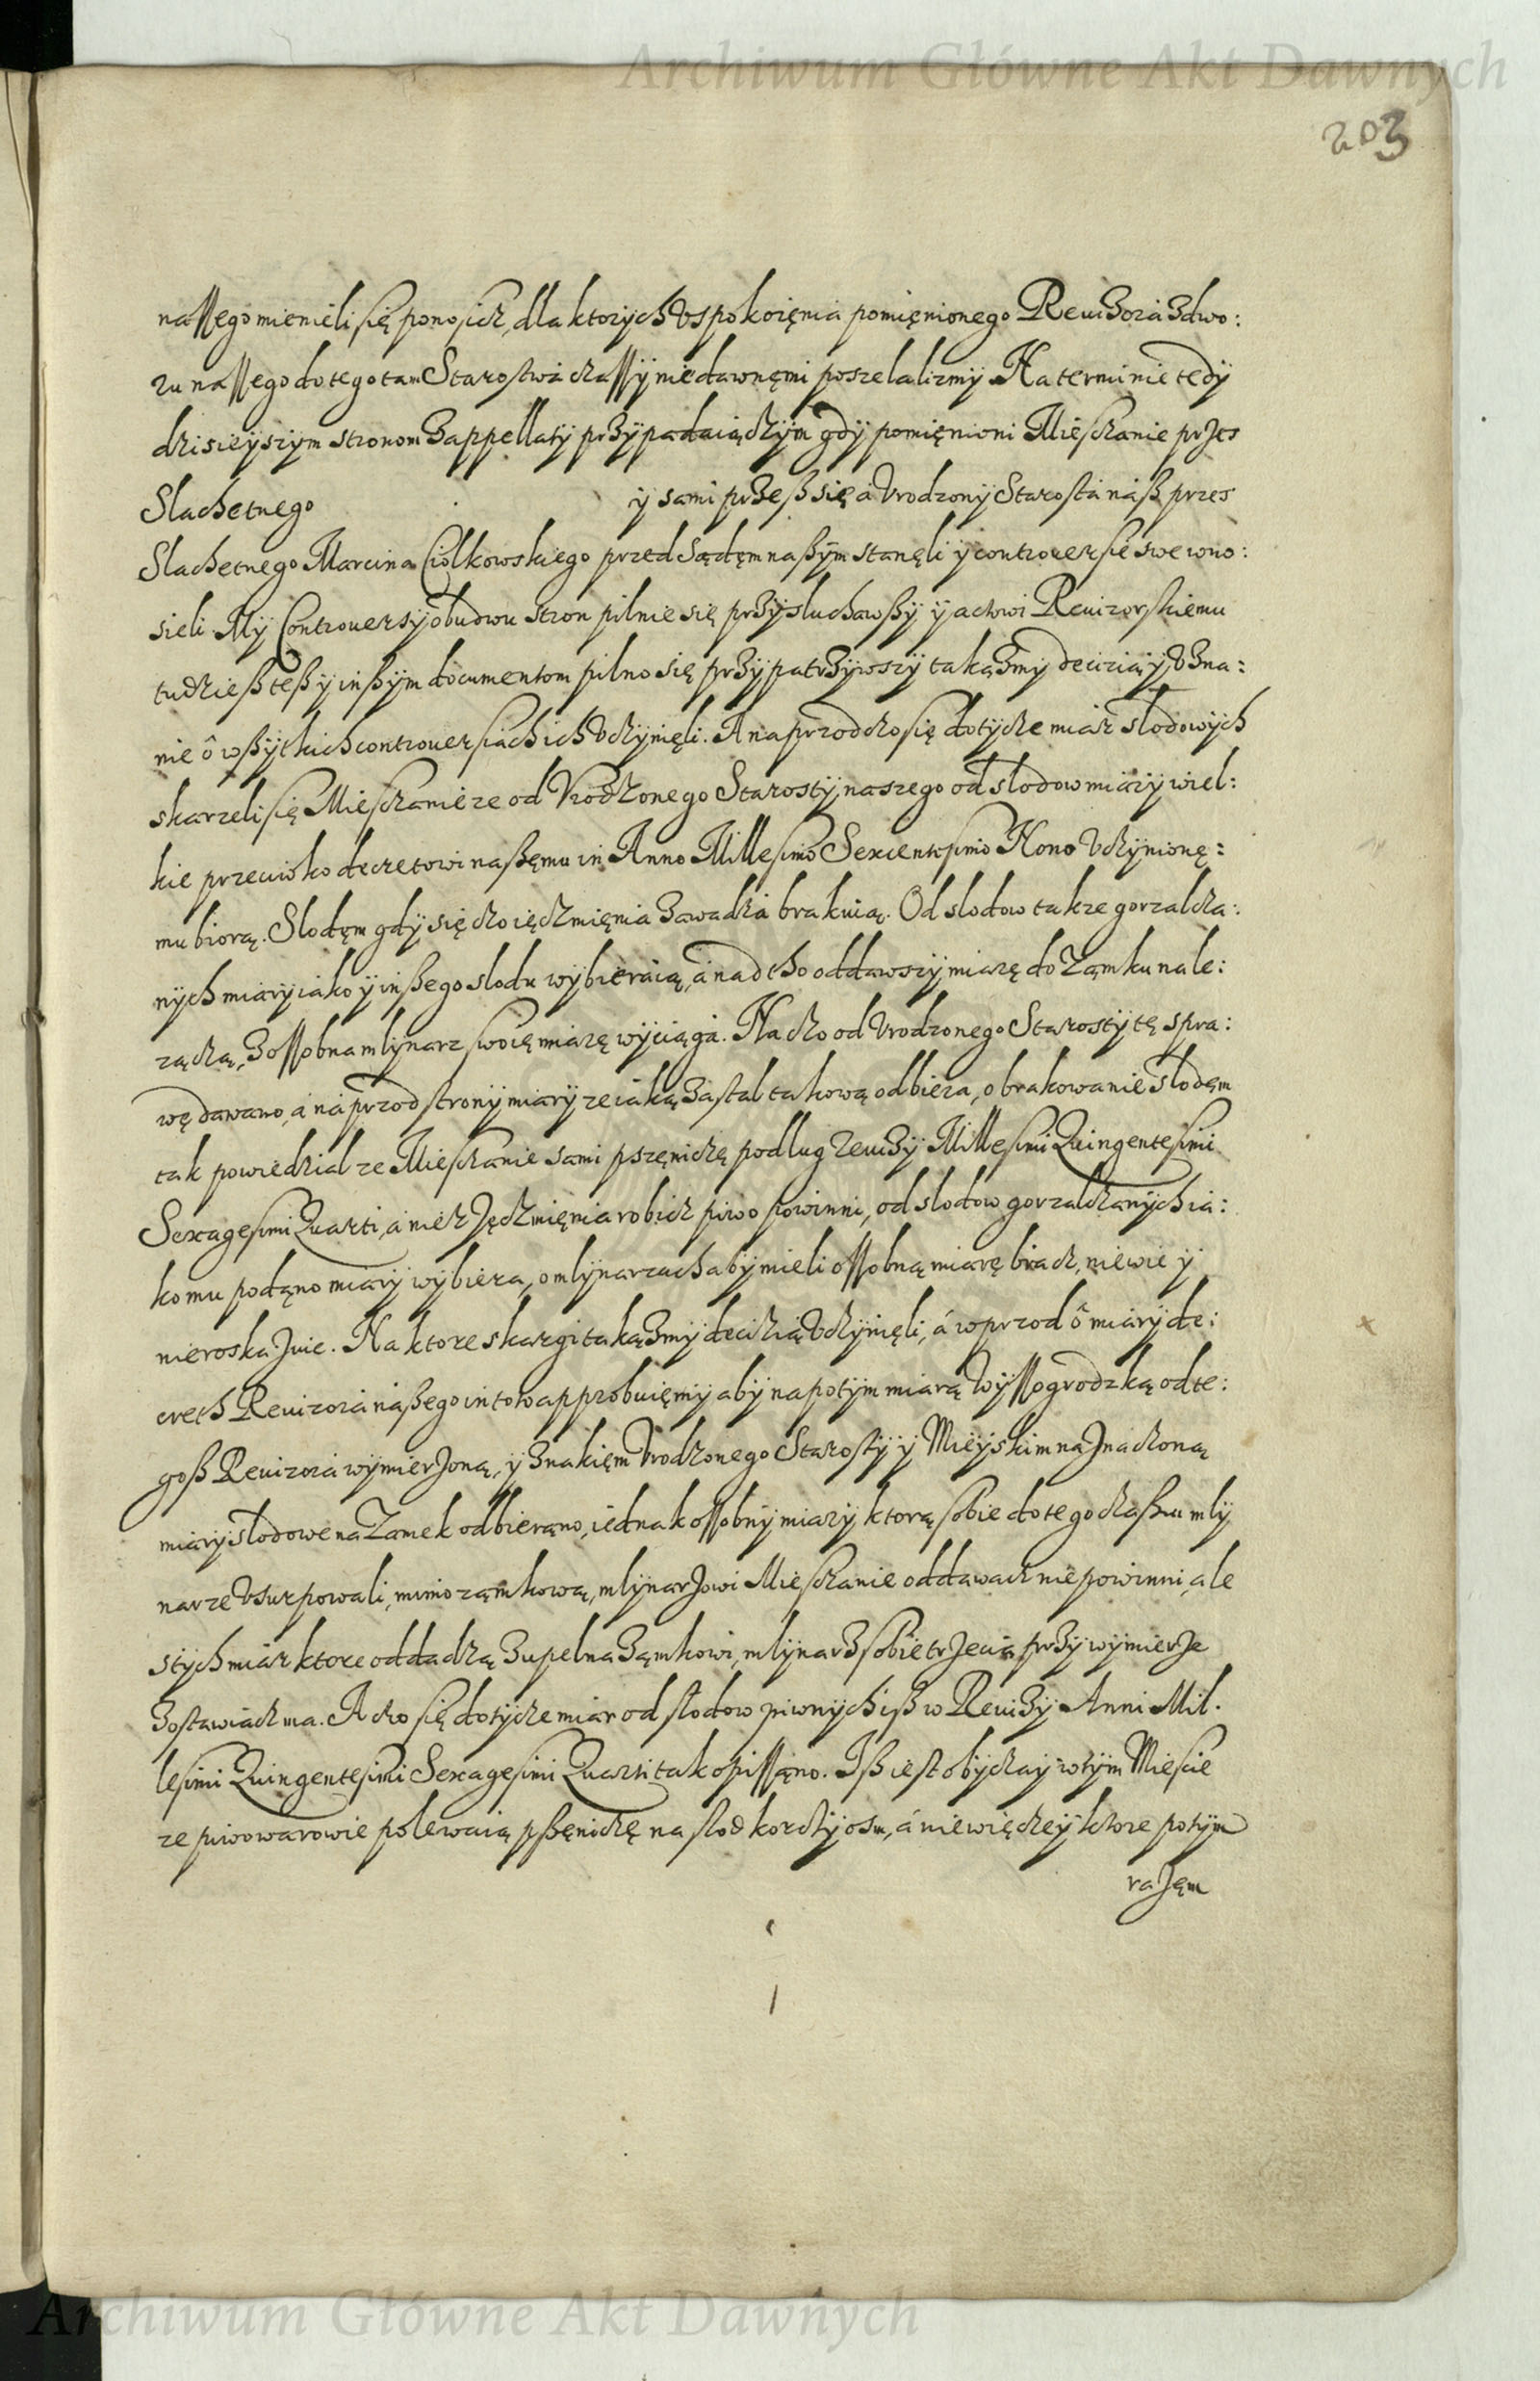 Archiwum Główne Akt Dawnych
203
naſſego mienieli się ponosicz, dla ktorych vspokoięnia pomięnionego Reuizora z dwo:
ru naſſego do tego tam Starostwa czaſſy niedawnęmi poszelalizmy. Na terminie tedy
dzisieyszym stronom z appellaty przypadaiączym gdy pomięnioni Miesczanie przes
Slachetnego y sami przesz się a Vrodzony Starosta nasz przes
Slachetnego Marcina Ciolkowskiego przed Sądęm naszym stanęli y controuersie swe wno:
sieli. My Controuersy obudwu stron pilnie się przysluchawszy y actowi Reuizorskiemu
tudziesz tesz y inszym documentom pilno się przypatrzywszy taką zmy decizią y vzna:
nie o wszytkich controuersiach ich vczynięli. A naprzod czo się dotycze miar slodowych
skarzeli się Miesczanie ze od Vrodzonego Starosty naszego od slodow miary wiel:
kie przeciwko decretowi naszęmu in Anno Millesimo Sexcentesimo Nono vczynionę:
mu biorą. Slodęm gdy się czo ięczmięnia zawadza brakuią. Od slodow takze gorzalcza:
nych miary iako y inszego slodu wybieraią, a nad tho oddawszy miarę do Zamku nale:
zączą, z oſſobna mlynarz swoię miarę wyciąga. Na czo od Vrodzonego Starosty tę spra:
wę dawano, a naprzod strony miary ze iaką zastal takową odbiera, o brakowanie slodęm
tak powiedzial ze Miesczanie sami pszęniczę podlug reuizy Millesimi Quingentesimi
Sexagesimi Quarti, a nie z Jęczmięnia robicz piwo powinni, od slodow gorzalczanych ia:
ko mu podano miary wybiera, o mlynarzach aby mieli oſſobną miarę bracz, nie wie y
nie roskazuie. Na ktore skargi taką zmy decizią vczynięli, a wprzod o miary de:
creth Reuizora naszego in toto approbuięmy aby napotym miarą Wyſſogrodzką od te:
gosz Reuizora wymierzoną, y znakięm Vrodzonego Starosty y Mieyskim naznaczoną
miary slodowe na Zamek odbierano, iednak oſſobny miary ktorą sobie do tego czaszu mly
narze vsurpowali, mimo zamkową, mlynarzowi Miesczanie oddawacz nie powinni, ale
s tych miar ktore oddadzą zupelna zamkowi, mlynarz sobie trzecią przy wymierze
zostawiacz ma. A czo się dotycze miar od slodow piwnych isz w Reuizy Anni Mil.
lesimi Quingentesimi Sexagesimi Quarti tak opiſſano. Isz iest obyczay w tym Miescie
ze piwowarowie polewaią pszęniczę na slod korczy osm, a niewięczey ktore potym
razęm
Archiwum Główne Akt Dawnych